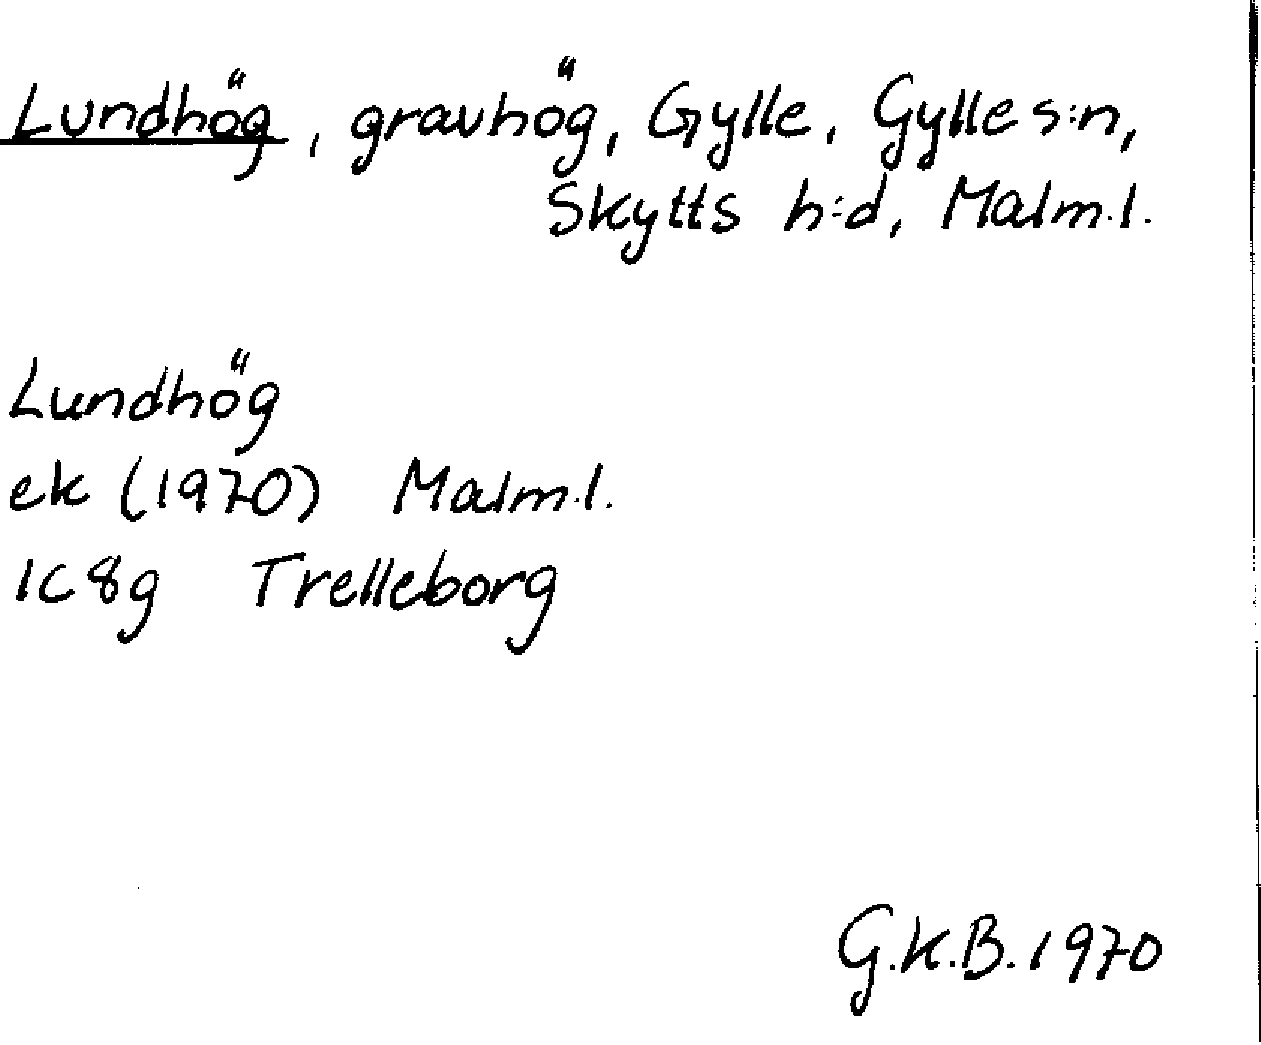 Lundhög, gravhög, Gylle, Gylle s:n,
Skytts h:d, Malm.l.
Lundhög
ek (1970) Malm.l.
1C8g Trelleborg
G.K.B. 1970